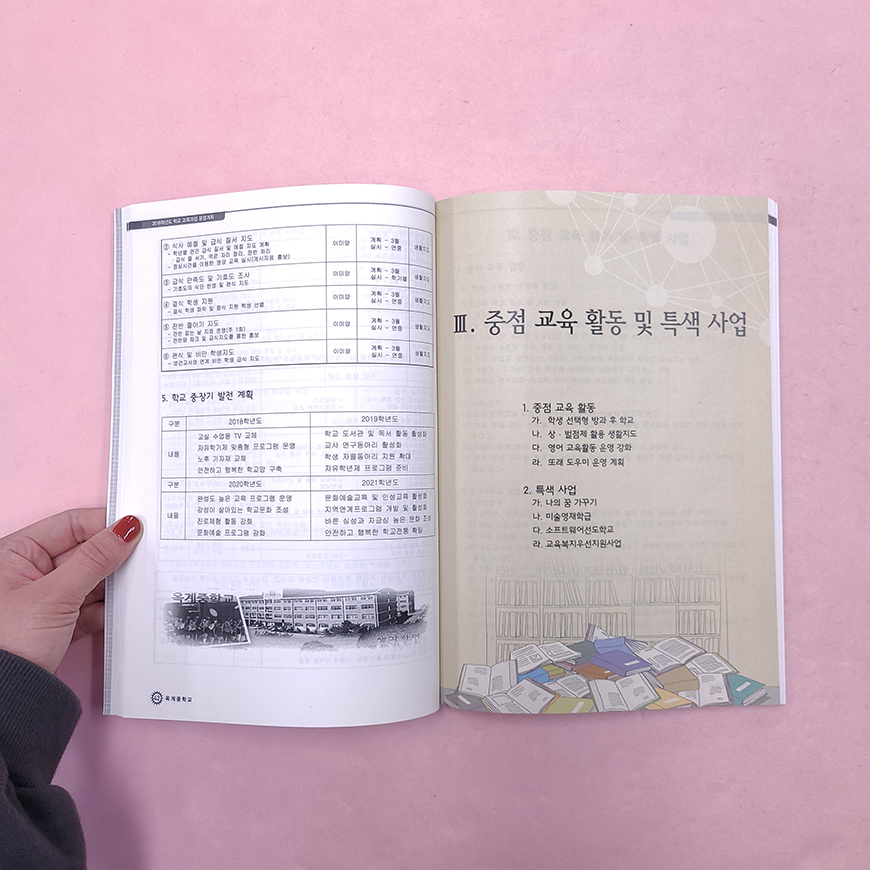 2018학년도 학교 교육과정 운영계획
② 식사 예절 및 급식 질서 지도
- 학년별 연간 급식 질서 및 예절 지도 계획
· 급식 줄 서기, 먹은 자리 정리, 잔반 처리
- 점심시간을 이용한 영양 교육 실시(게시자료 홍보)
이미양
계획 - 3월
실시 - 연중
생활지도
③ 급식 만족도 및 기호도 조사
- 기호도의 식단 반영 및 편식 지도
이미양
계획 - 3월
실시 - 학기별
생활지도
④ 결식 학생 지원
- 결식 학생 파악 및 중식 지원 학생 선별
이미양
계획 - 3월
실시 - 연중
생활지도
⑤ 잔반 줄이기 지도
- 잔반 없는 날 지정 운영(주 1회)
- 잔반량 체크 및 급식지도를 통한 홍보
이미양
계획 - 3월
실시 - 연중
생활지도
⑥ 편식 및 비만 학생지도
- 보건교사와 연계 비만 학생 급식 지도
이미양
계획 - 3월
실시 - 연중
생활지도
5. 학교 중·장기 발전 계획
구분 2018학년도 2019학년도
내용
교실 수업용 TV 교체
자유학기제 맞춤형 프로그램 운영
노후 기자재 교체
안전하고 행복한 학교망 구축
학교 도서관 및 독서 활동 활성화
교사 연구동아리 활성화
학생 자율동아리 지원 확대
자유학년제 프로그램 준비
구분 2020학년도 2021학년도
내용
완성도 높은 교육 프로그램 운영
감성이 살아있는 학교문화 조성
진로체험 활동 강화
문화예술 프로그램 강화
문화예술교육 및 인성교육 활성화
지역연계프로그램 개발 및 활성화
바른 심성과 자긍심 높은 문화 조성
안전하고 행복한 학교전통 확립
옥계중학교
42 옥계중학교
Ⅲ. 중점 교육 활동 및 특색 사업
1. 중점 교육 활동
가. 학생 선택형 방과 후 학교
나. 상·벌점제 활용 생활지도
다. 영어 교육활동 운영 강화
라. 또래 도우미 운영 계획
2. 특색 사업
가. 나의 꿈 가꾸기
나. 미술영재학급
다. 소프트웨어선도학교
라. 교육복지우선지원사업